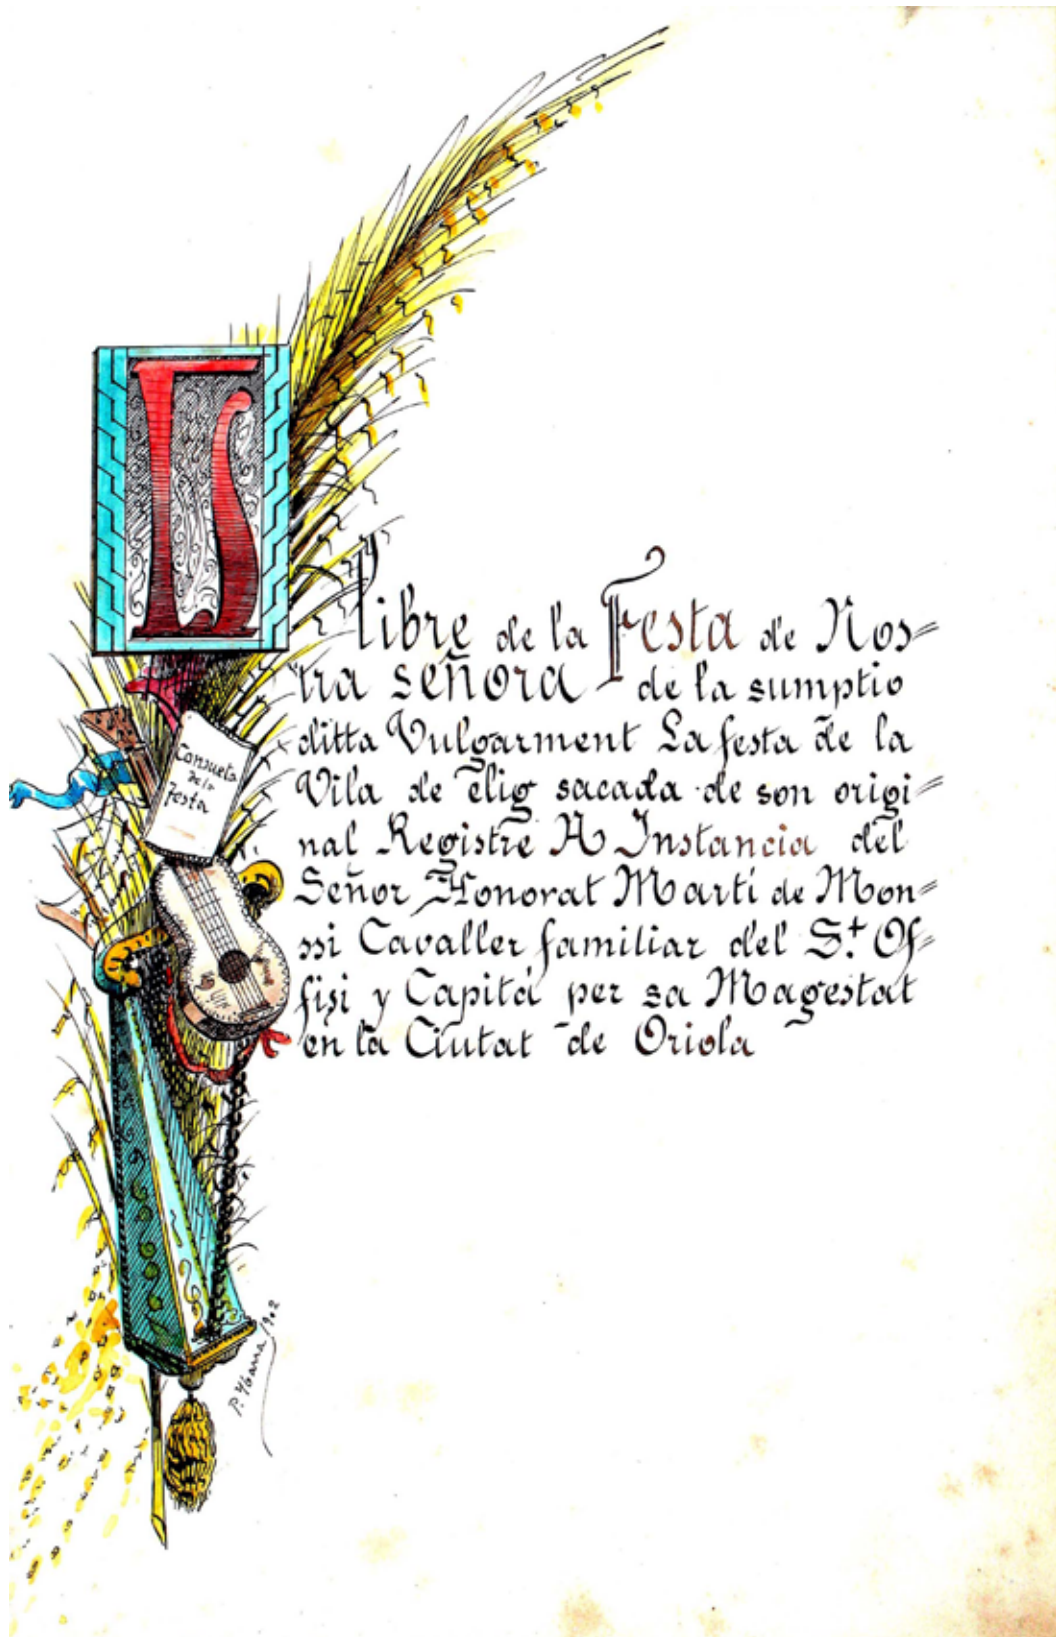 Llibre de la Festa de Nos=
tra SEÑORA de la sumptio
ditta Vulgarment La festa de la
Vila de Elig sacada de son origi=
nal Registre A Instancia del
Señor Honorat Martí de Mon=
ssi Cavaller familiar del S.t Of=
fisi y Capitá per sa Magestat
en la Ciutat de Oriola
Consueta
de la
festa
P. Ybarra 1902